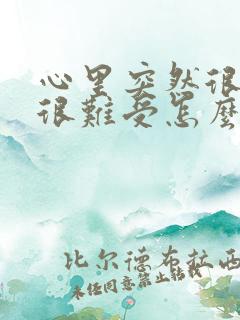 心里突然很
很難受怎麼
比尔德布拉西
未任同意禁止转载